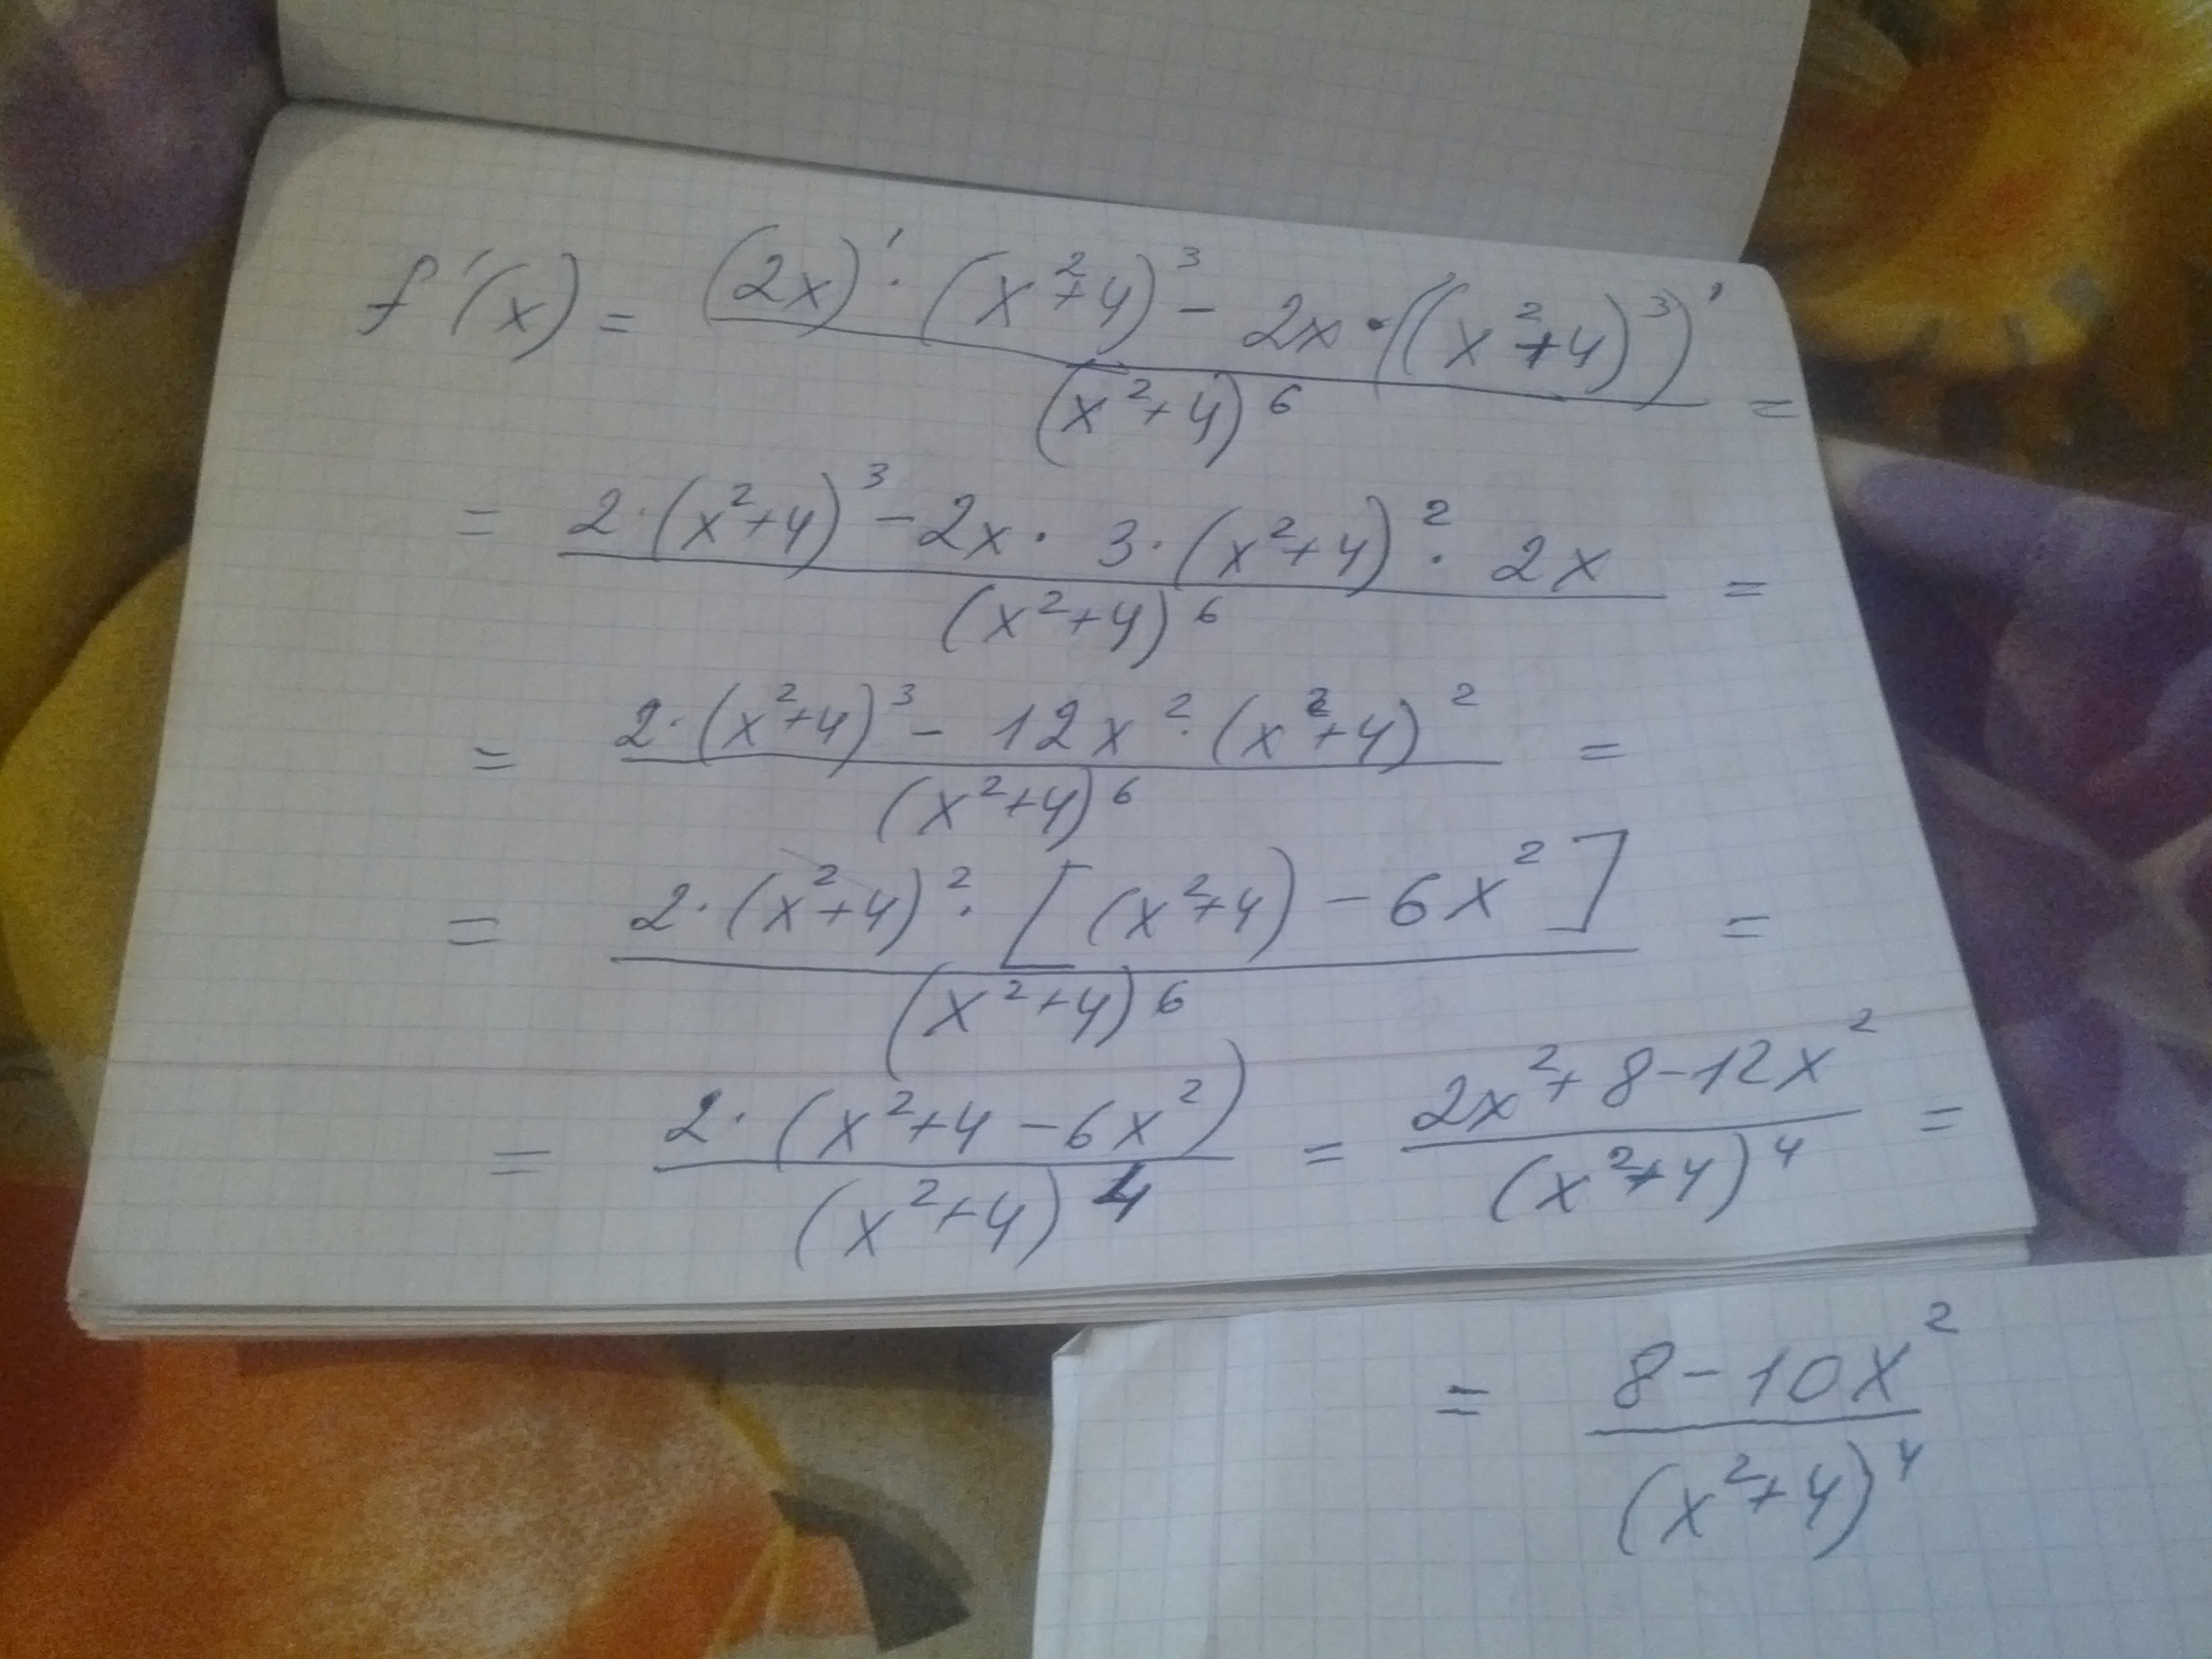 f'(x) = ((2x)' · (x²+4)³ − 2x · ((x²+4)³)') / (x²+4)⁶ =
= (2·(x²+4)³ − 2x · 3·(x²+4)² · 2x) / (x²+4)⁶ =
= (2·(x²+4)³ − 12x² · (x²+4)²) / (x²+4)⁶ =
= (2·(x²+4)² · [(x²+4) − 6x²]) / (x²+4)⁶ =
= (2·(x²+4−6x²)) / (x²+4)⁴ = (2x²+8−12x²) / (x²+4)⁴ =
= (8−10x²) / (x²+4)⁴